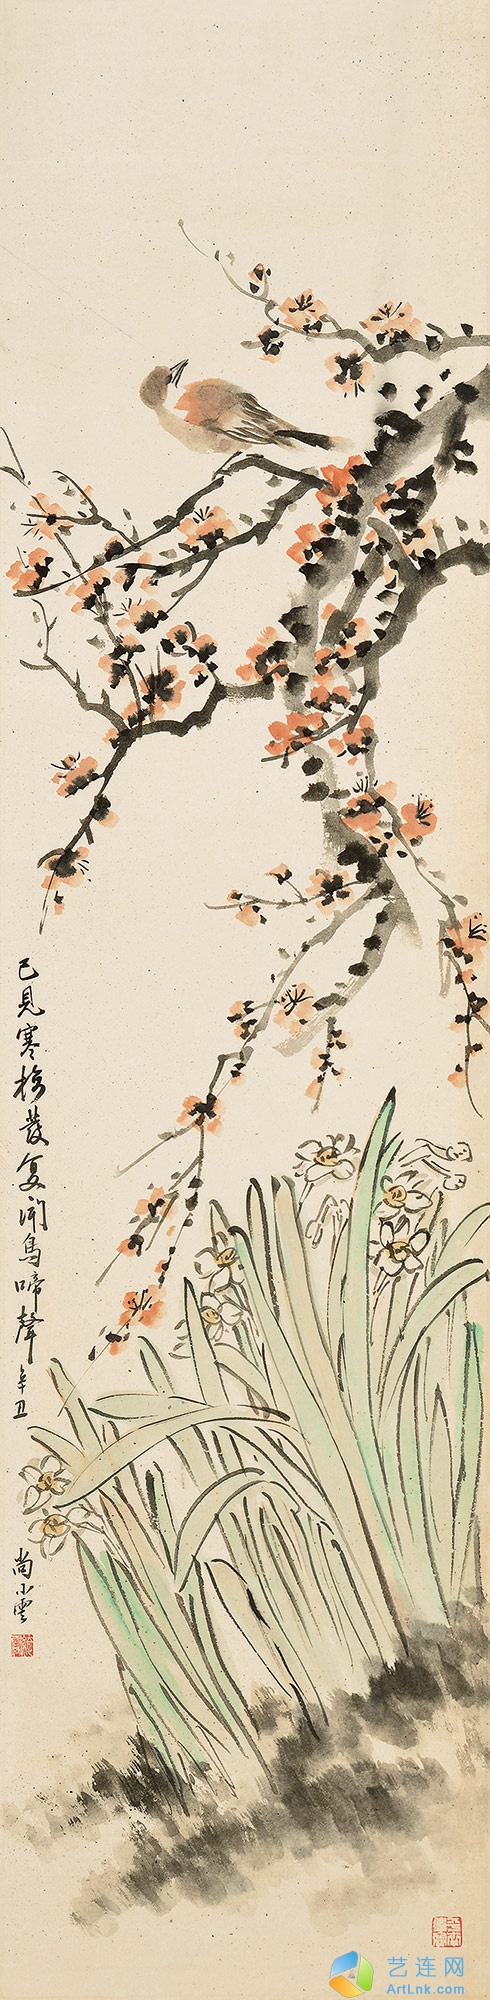 已見寒梅發复闻鳥啼聲 辛丑
尚小雲
艺连网
ArtLnk.com